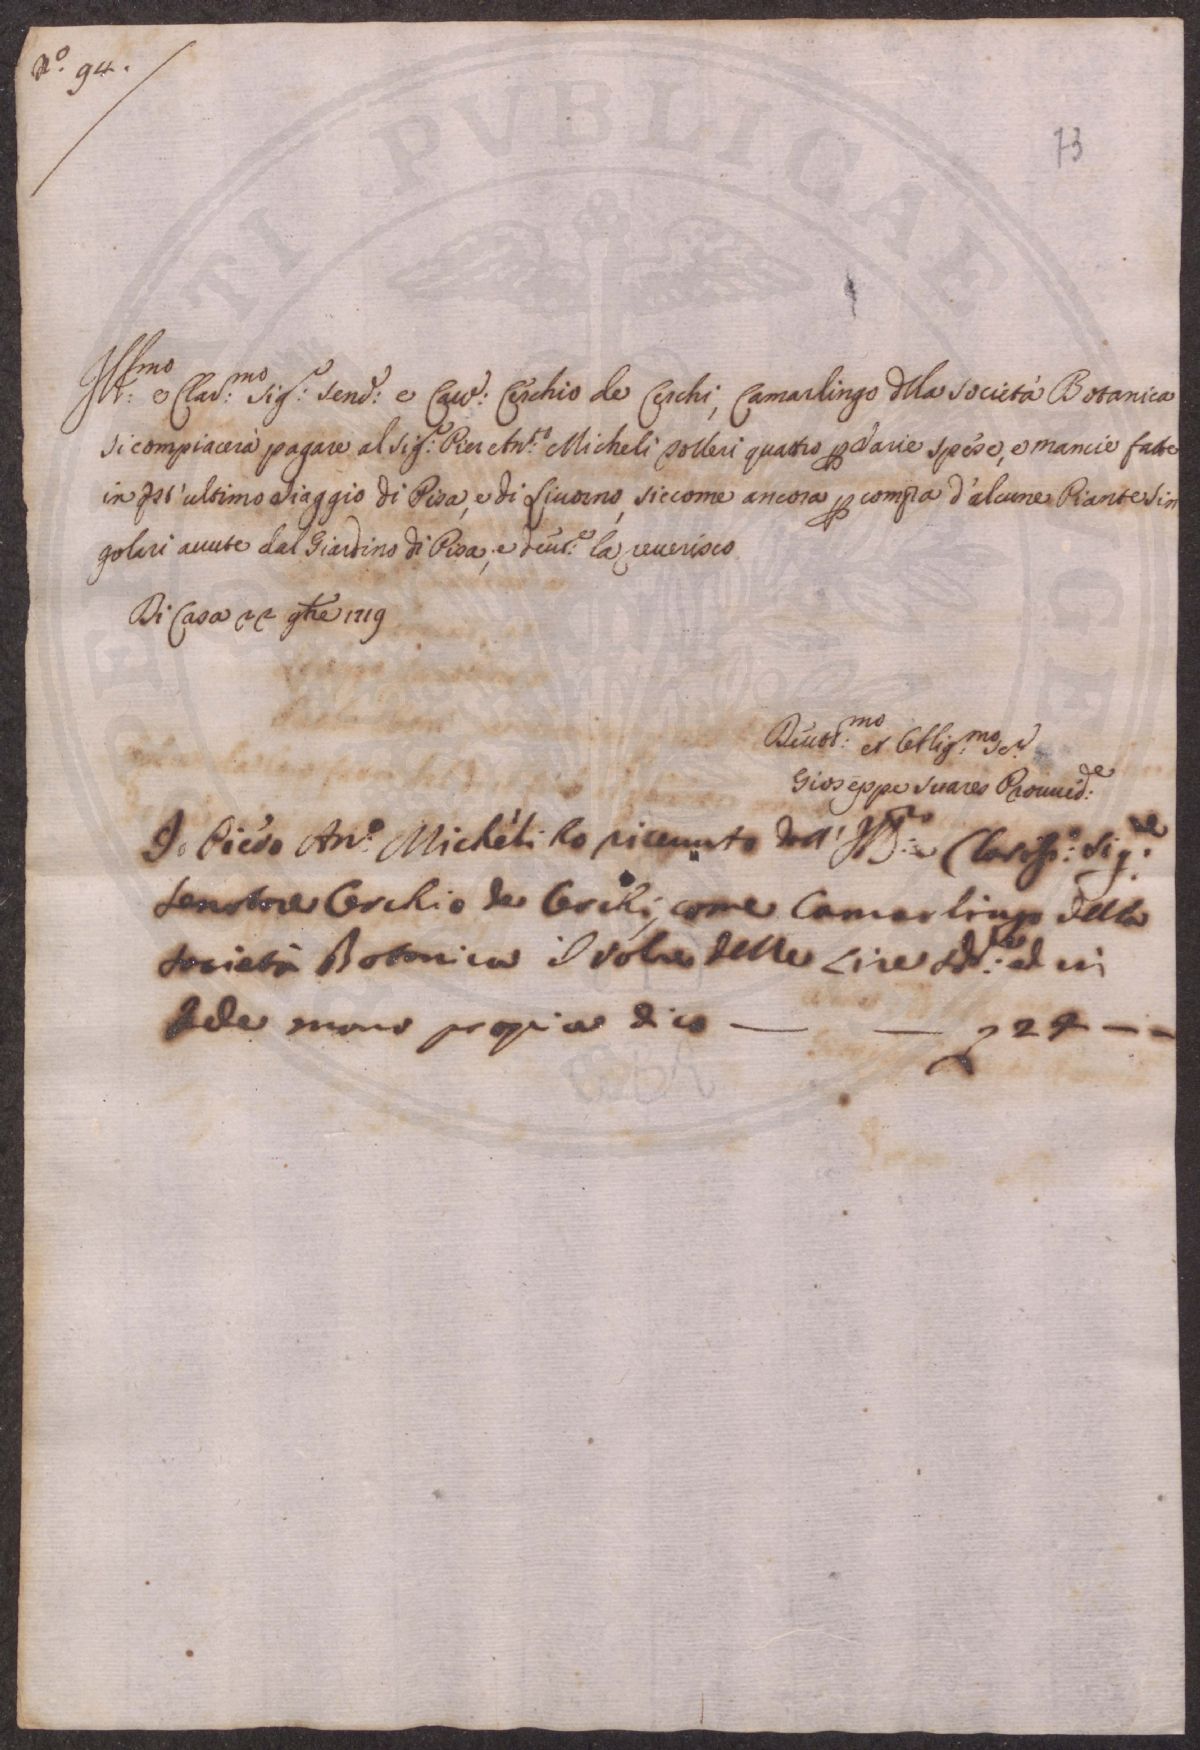 N.o 94.
73
Ill:mo e Clar:mo Sig:r Send:e e Cav:e Cerchio de Cerchi, Camarlingo della Società Botanica
si compiacerà pagare al Sig:r Pier Ant:o Micheli Zolleri quattro p varie spese, e mancie fatte
in quest'ultimo viaggio di Pisa, e di Livorno, siccome ancora p compra d'alcune Piante sin
golari avute dal Giardino di Pisa; e devot:e la reverisco
Di Casa 22 9bre 1719
Devot:mo et Obblig:mo Ser:e
Gioseppe Suares Proved:de
Io Piero An:o Micheli ho ricevuto dall' Ill:mo e Clariss:o Sig:re
Senatore Cerchio de Cerchi, come Camarlingo della
Società Botanica il valore delle Lire ed in
fede mano propria dico — — 24 — —